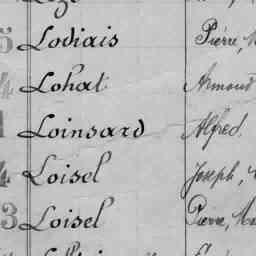 5 Lodiais Pierre,
4 Lohat Armand
1 Loinsard Alfred
4 Loisel Joseph,
3 Loisel Pierre,